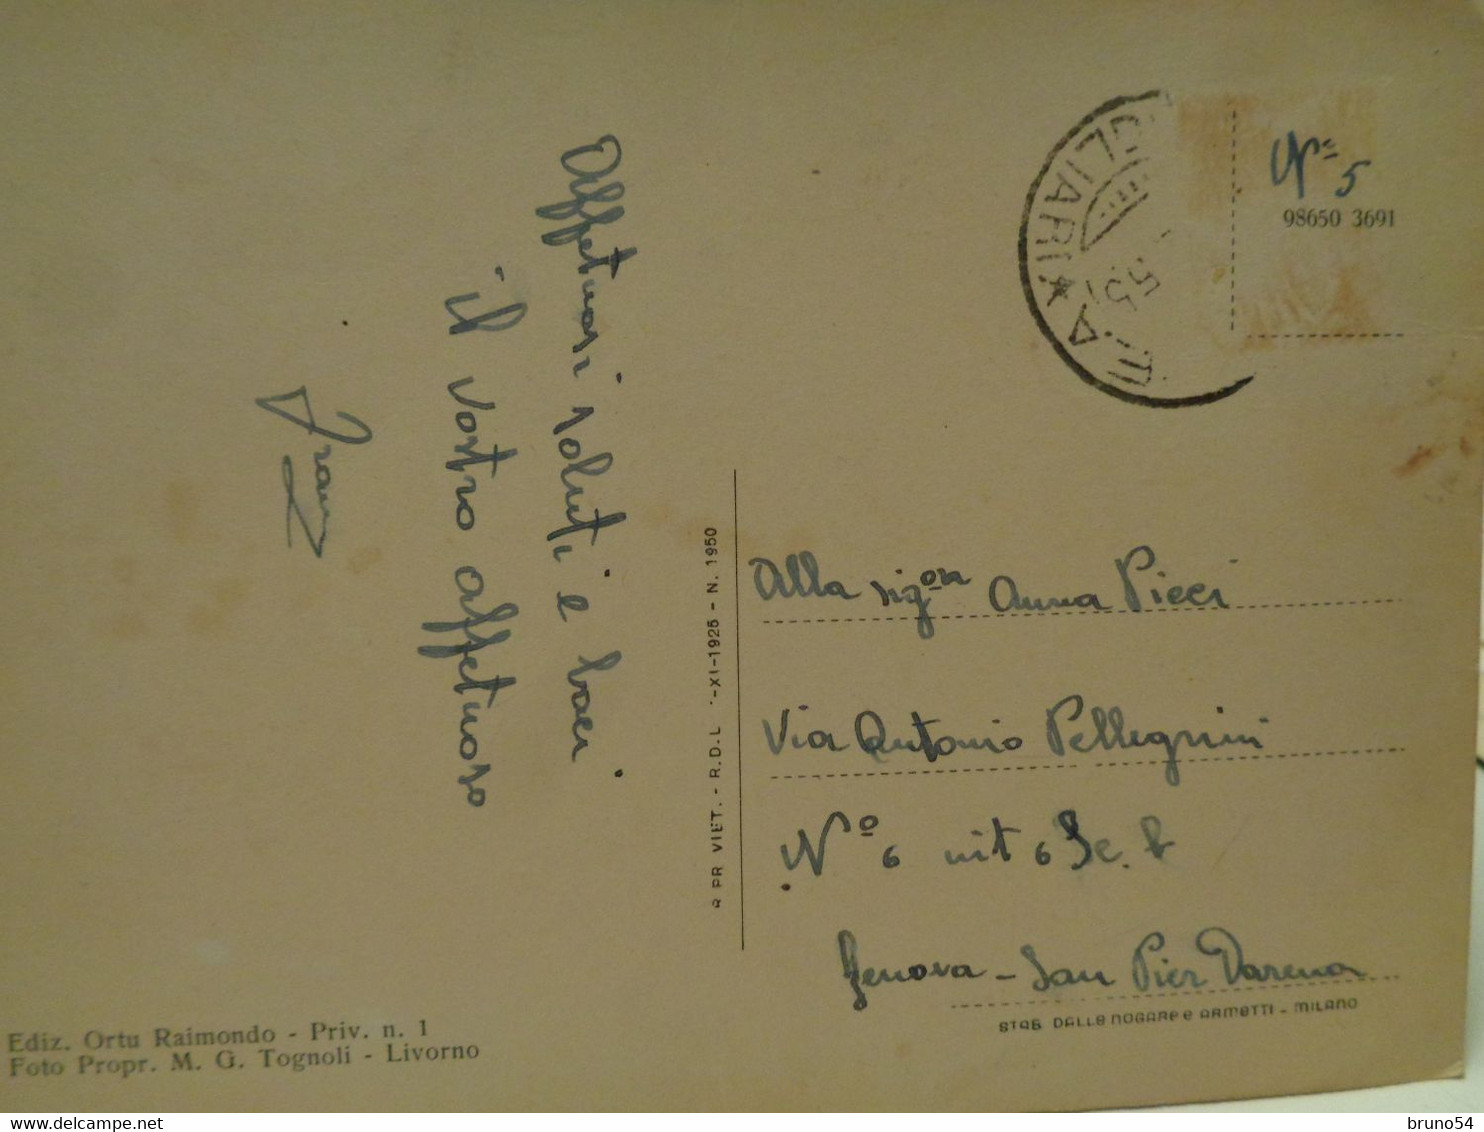 Affettuosi saluti e baci
il vostro affettuoso
Franz
N= 5
98650 3691
CAGLIARI * 
55
Alla sig.ra Anna Picci
Via Antonio Pellegrini
N° 6 int 6 Sc. b
Genova - San Pier Darena
STAB DALLE NOGARE e ARMETTI - MILANO
RIPR VIET. - R.D.L -XI-1925 - N. 1950
Ediz. Ortu Raimondo - Priv. n. 1
Foto Propr. M. G. Tognoli - Livorno
bruno54